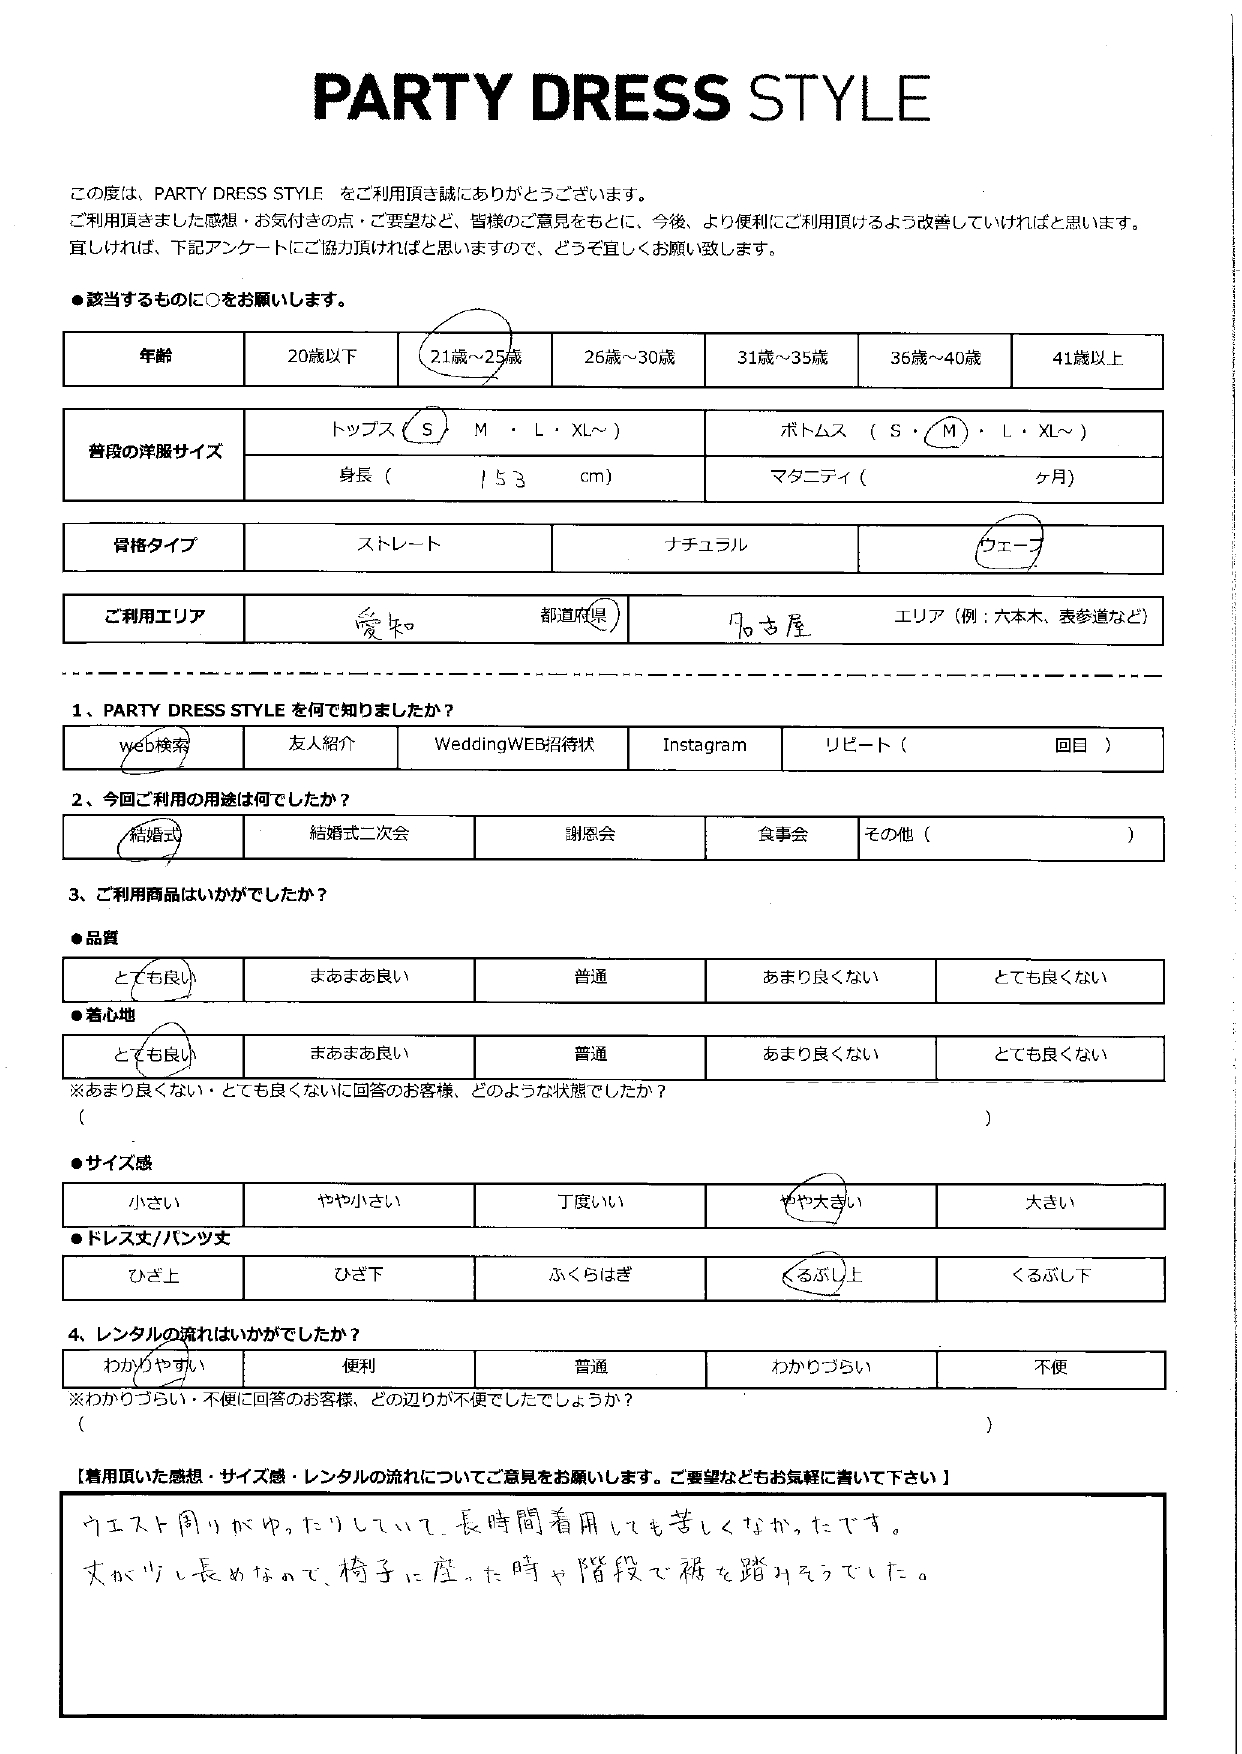 PARTY DRESS STYLE
この度は、PARTY DRESS STYLE をご利用頂き誠にありがとうございます。
ご利用頂きました感想・お気付きの点・ご要望など、皆様のご意見をもとに、今後、より便利にご利用頂けるよう改善していければと思います。
宜しければ、下記アンケートにご協力頂ければと思いますので、どうぞ宜しくお願い致します。
●該当するものに○をお願いします。
年齢 20歳以下 21歳～25歳 26歳～30歳 31歳～35歳 36歳～40歳 41歳以上
普段の洋服サイズ
トップス ( S ・ M ・ L ・ XL～ ) ボトムス ( S ・ M ・ L ・ XL～ )
身長 ( 153 cm) マタニティ ( ヶ月)
骨格タイプ ストレート ナチュラル ウェーブ
ご利用エリア 愛知 都道府県 名古屋 エリア（例：六本木、表参道など）
1、PARTY DRESS STYLE を何で知りましたか？
web検索 友人紹介 WeddingWEB招待状 Instagram リピート ( 回目 )
2、今回ご利用の用途は何でしたか？
結婚式 結婚式二次会 謝恩会 食事会 その他 ( )
3、ご利用商品はいかがでしたか？
●品質
とても良い まあまあ良い 普通 あまり良くない とても良くない
●着心地
とても良い まあまあ良い 普通 あまり良くない とても良くない
※あまり良くない・とても良くないに回答のお客様、どのような状態でしたか？
( )
●サイズ感
小さい やや小さい 丁度いい やや大きい 大きい
●ドレス丈/パンツ丈
ひざ上 ひざ下 ふくらはぎ くるぶし上 くるぶし下
4、レンタルの流れはいかがでしたか？
わかりやすい 便利 普通 わかりづらい 不便
※わかりづらい・不便に回答のお客様、どの辺りが不便でしたでしょうか？
( )
【着用頂いた感想・サイズ感・レンタルの流れについてご意見をお願いします。ご要望などもお気軽に書いて下さい】
ウエスト周りがゆったりしていて、長時間着用しても苦しくなかったです。
丈が少し長めなので、椅子に座った時や階段で裾を踏みそうでした。